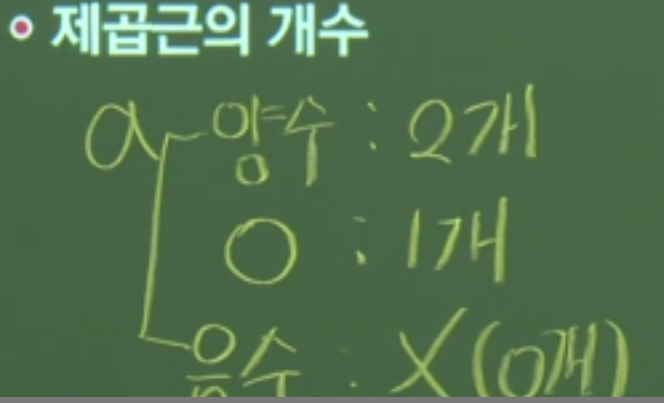 제곱근의 개수
a 양수 : 2개
0 : 1개
음수 : X (0개)